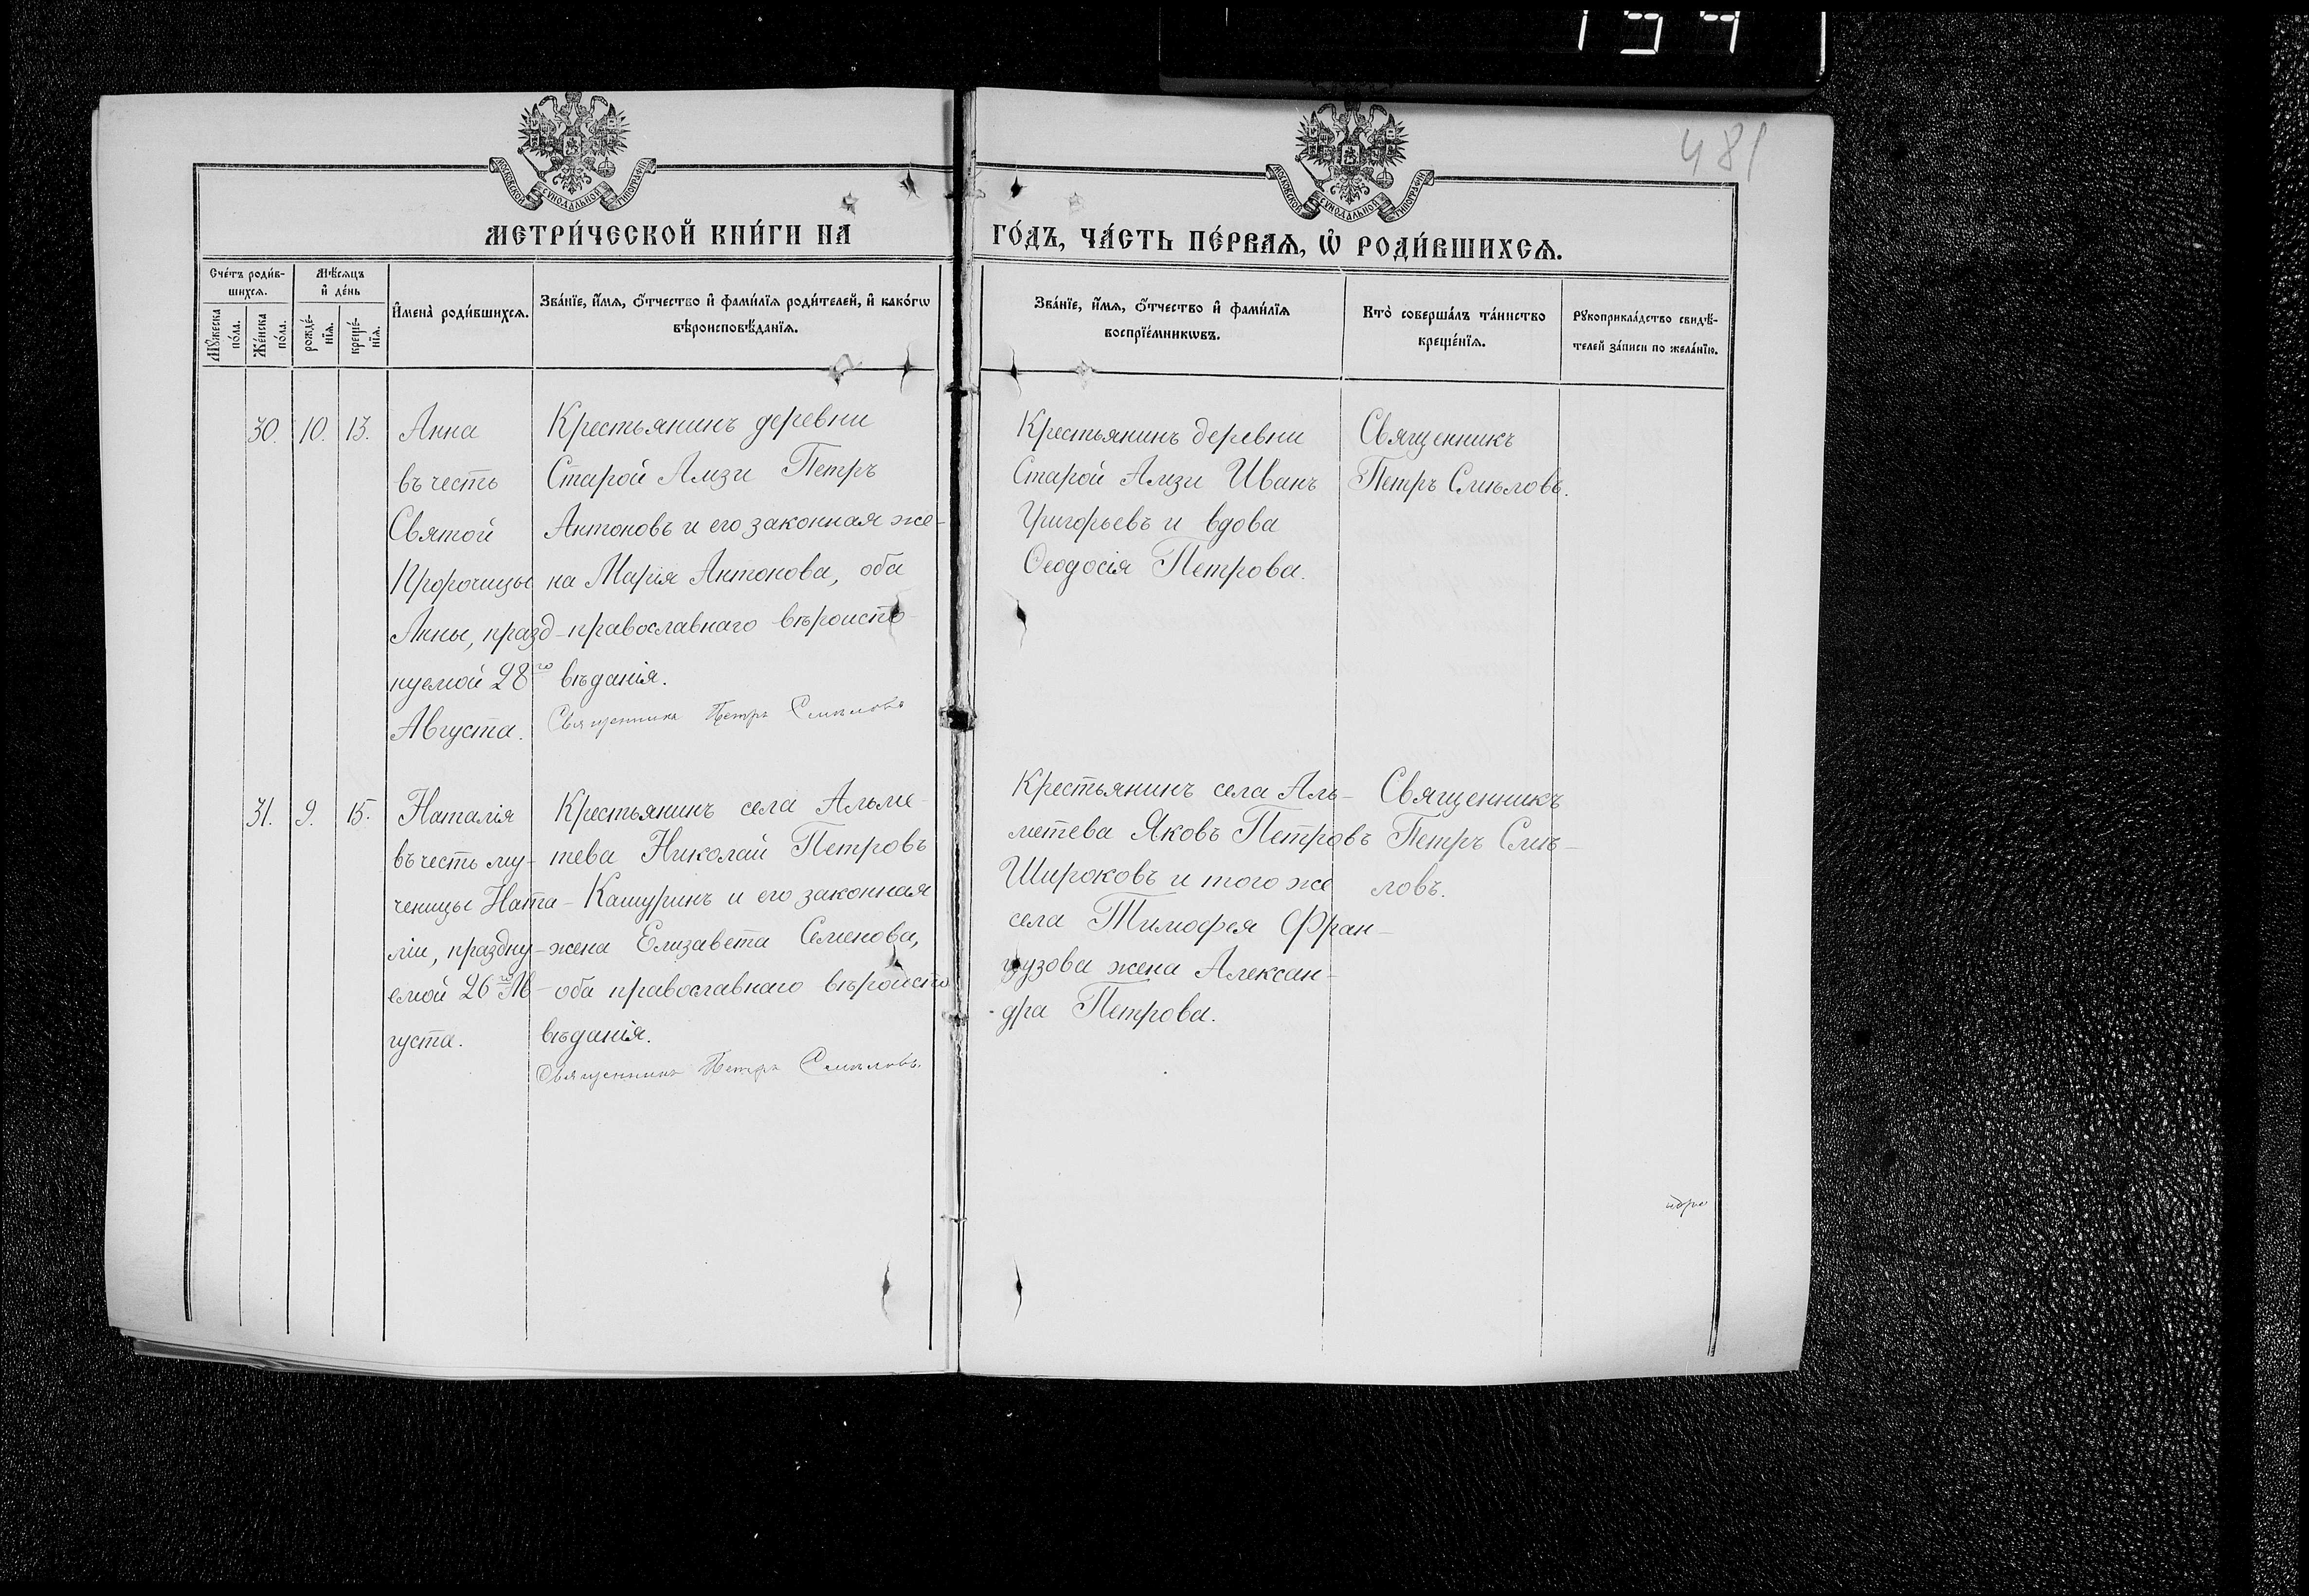 194
481
МОСКОВСКОЙ СѴНОДАЛЬНОЙ ТИПОГРАФІИ
МОСКОВСКОЙ СѴНОДАЛЬНОЙ ТИПОГРАФІИ
МЕТРИ́ЧЕСКОЙ КНИ́ГИ НА
ГО́ДЪ, ЧА́СТЬ ПЕ́РВАѦ, Ѡ҆ РОДИ́ВШИХСѦ.
Сче́тъ роди́в-
шихсѧ.
Мꙋ́жеска
по́ла.
Же́нска
по́ла.
Мѣ́сѧцъ
и҆ де́нь
рожде́-
нїѧ.
креще́-
нїѧ.
И҆мена̀ роди́вшихсѧ.
Зва́нїе, и҆́мѧ, ѻ҆́тчество и҆ фами́лїѧ роди́телей, и҆ како́гѡ
вѣроисповѣ́данїѧ.
Зва́нїе, и҆́мѧ, ѻ҆́тчество и҆ фами́лїѧ
воспрїе́мникѡвъ.
Кто̀ соверша́лъ та́инство
креще́нїѧ.
Рꙋкоприкла́дство свидѣ́-
телей за́писи по жела́нїю.
30. 10. 13.
Анна
въ честь
Святой
Пророчицы
Анны, празд-
нуемой 28го
Августа.
Крестьянинъ деревни
Старой Амзи Петръ
Антоновъ и его законная же-
на Марія Антонова, оба
православнаго вѣроиспо-
вѣданія.
Священникъ Петръ Смѣловъ
Крестьянинъ деревни
Старой Амзи Иванъ
Григорьевъ и вдова
Ѳеодосія Петрова.
Священникъ
Петръ Смѣловъ.
31. 9. 15.
Наталія
въ честь му-
ченицы Ната-
ліи, праздну-
емой 26го Ав-
густа.
Крестьянинъ села Альме-
тева Николай Петровъ
Кашуринъ и его законная
жена Елизавета Семенова,
оба православнаго вѣроиспо
вѣданія.
Священникъ Петръ Смѣловъ.
Крестьянинъ села Аль-
метева Яковъ Петровъ
Широковъ и того же
села Тимоѳея Фран-
цузова жена Алексан-
дра Петрова.
Священникъ
Петръ Смѣ-
ловъ.